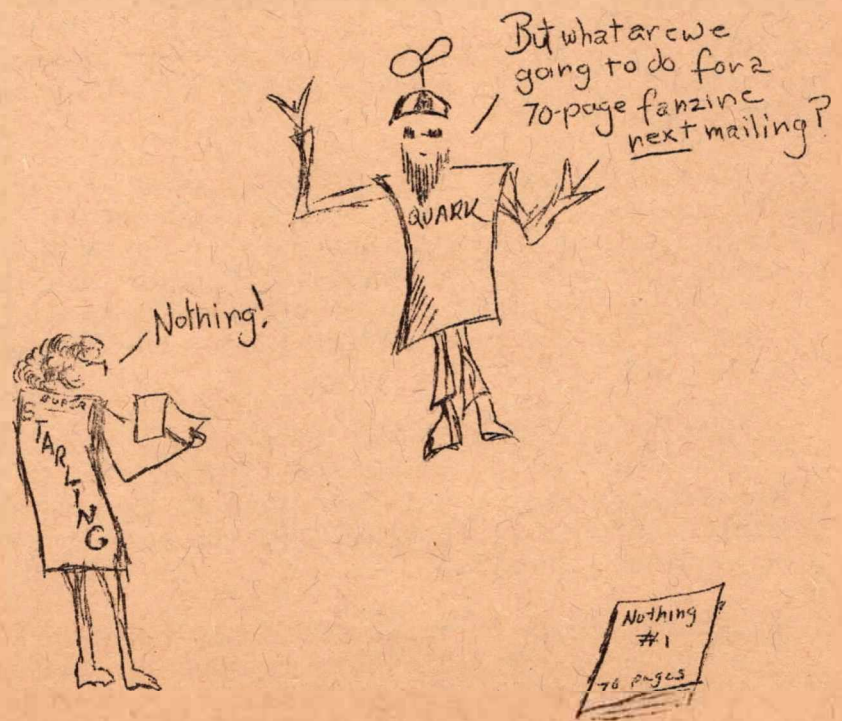 But what are we
going to do for a
70-page fanzine
next mailing?
QUARK
Nothing!
SUPER
STARLING
Nothing
#1
70 pages